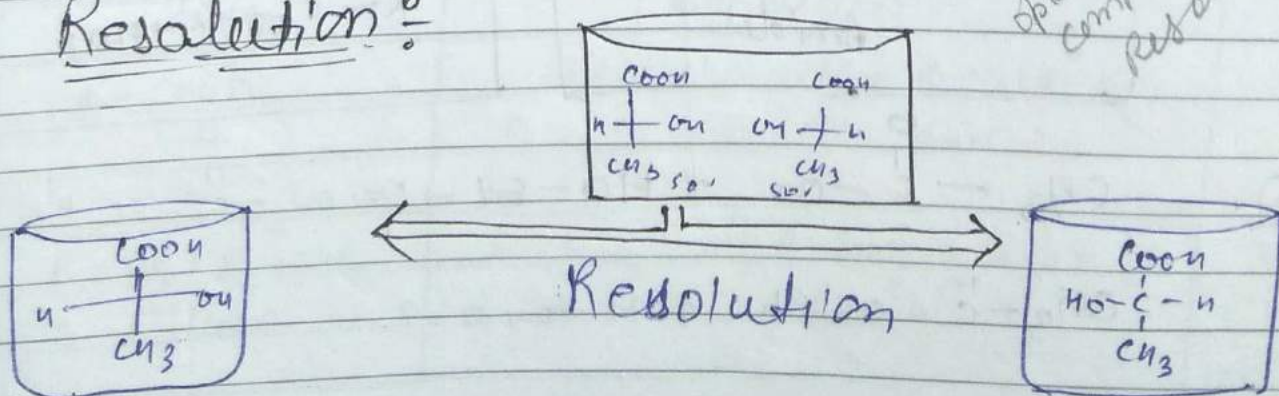 Resolution :
COOH COOH
H OH OH H
CH3 50% 50% CH3
COOH
H OH
CH3
Resolution
COOH
HO-C-H
CH3